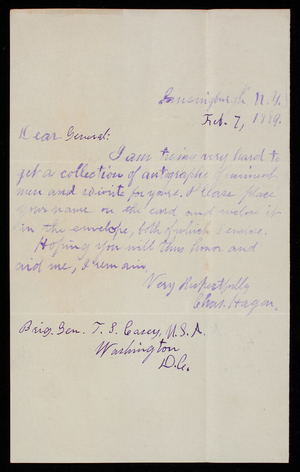 Lansingburgh N.Y.
Feb. 7, 1889.
Dear General:
I am trying very hard to
get a collection of autographs of eminent
men and write for yours. Please place
your name on the card and enclose it
in the envelope, both of which I enclose.
Hoping you will thus honor and
aid me, I remain,
Very Respectfully
Chas. Hagen.
Brig. Gen. T. L. Casey, U.S.A.
Washington
D.C.